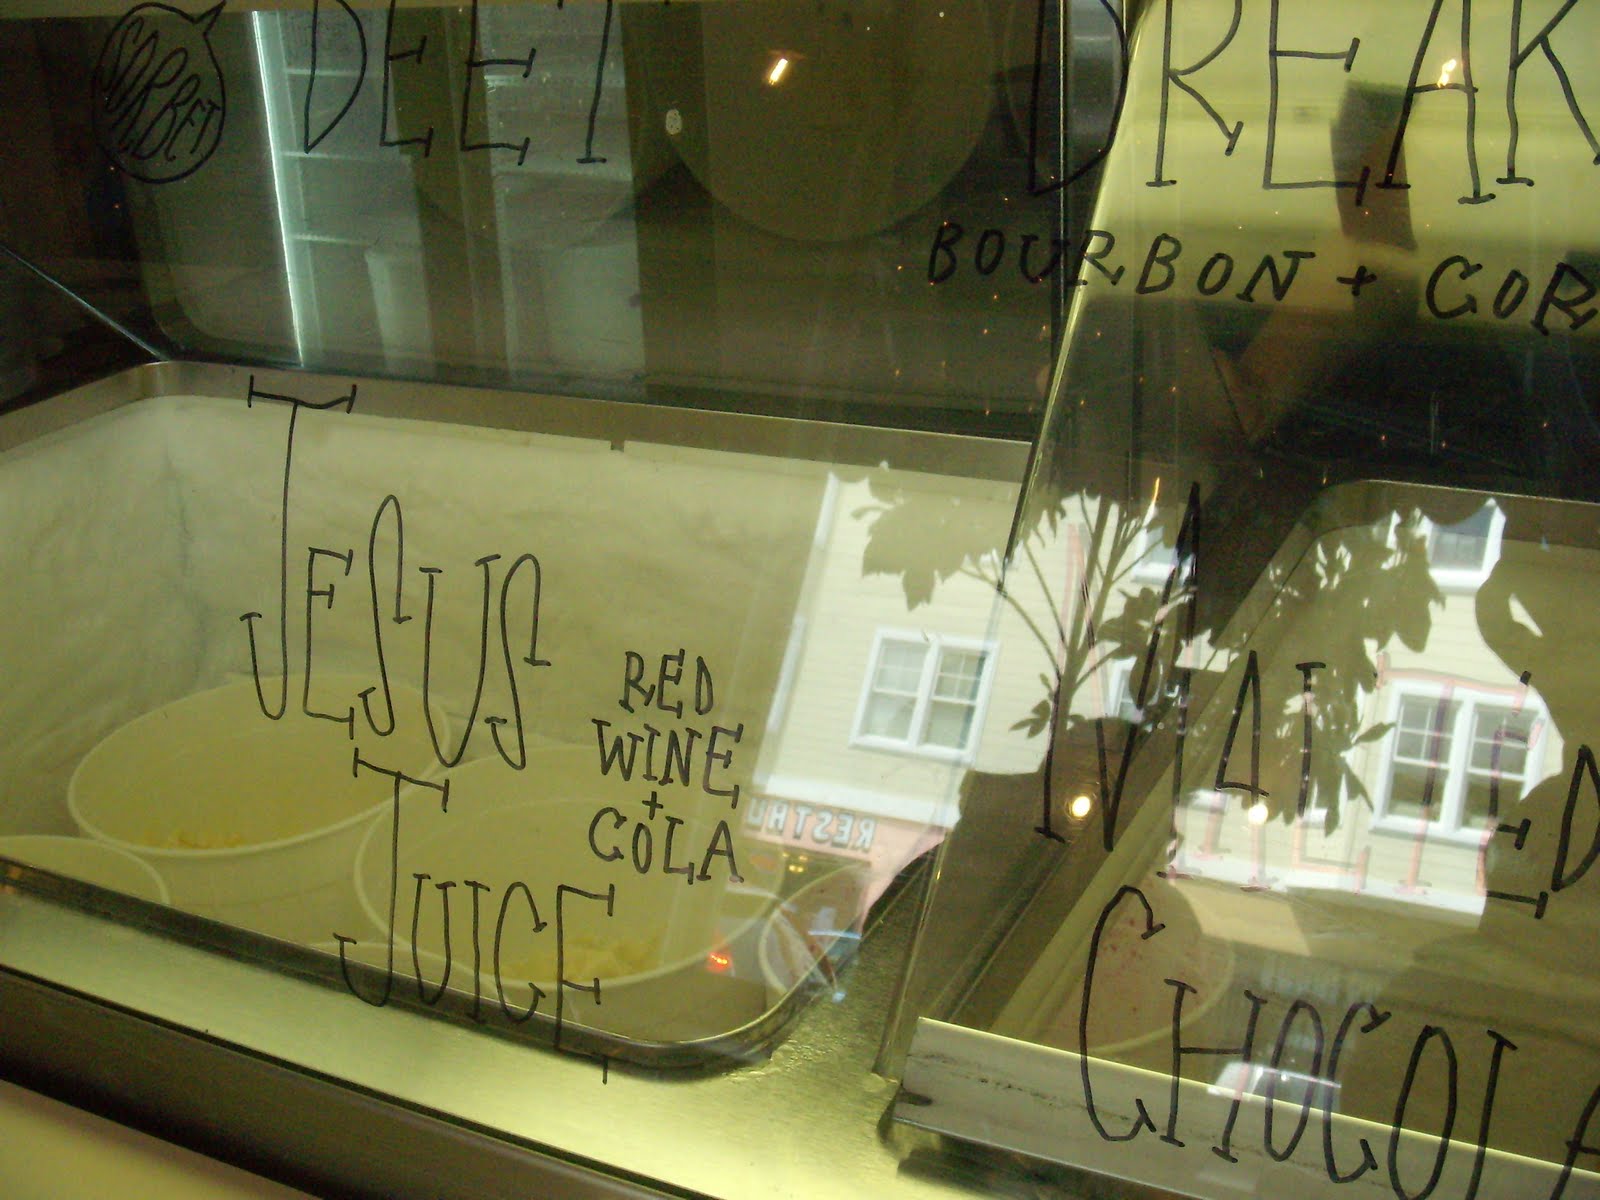 SORBET
BEET
BREAK
BOURBON + COR
JESUS
JUICE
RED
WINE
+
COLA
MALTED
CHOCOLA
RESTAU